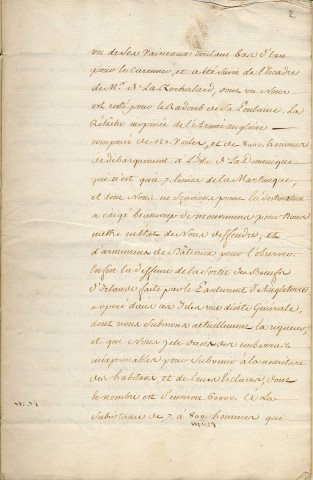 2
un de ses Vaisseaux coulant bas d'Eau
pour le Caréner, et a été Suivi de l'Escadre
de Mr. de La Rochalard, dont un Nous
est resté pour le Radoub de Sa
Relache de l'Armée anglaise
composée de 120 Voiles, et de 8000 hommes
de débarquement à L'Isle de La Dominique
qui n'est qu'a 7. lieües de la Martinique,
et dont Nous ne Scavions point la destination
a exigé beaucoup de mouvemens pour Nous
mettre en état de Nous deffendre, et
d'armemens de Bateaux pour l'observer.
Enfin la deffense de la Sortie des Boeufs
d'Irlande faite par le Parlement d'Angleterre
a operé dans ces Isles une disete Generale,
dont nous Subissons actuellement la rigueur,
et qui Nous jete dans des embarras
inexprimables pour Subvenir à la nouriture
des habitans et de leurs Esclaves, dont
le nombre est d'environ 60000. et La
Subsistance de 7. a 800. hommes qui